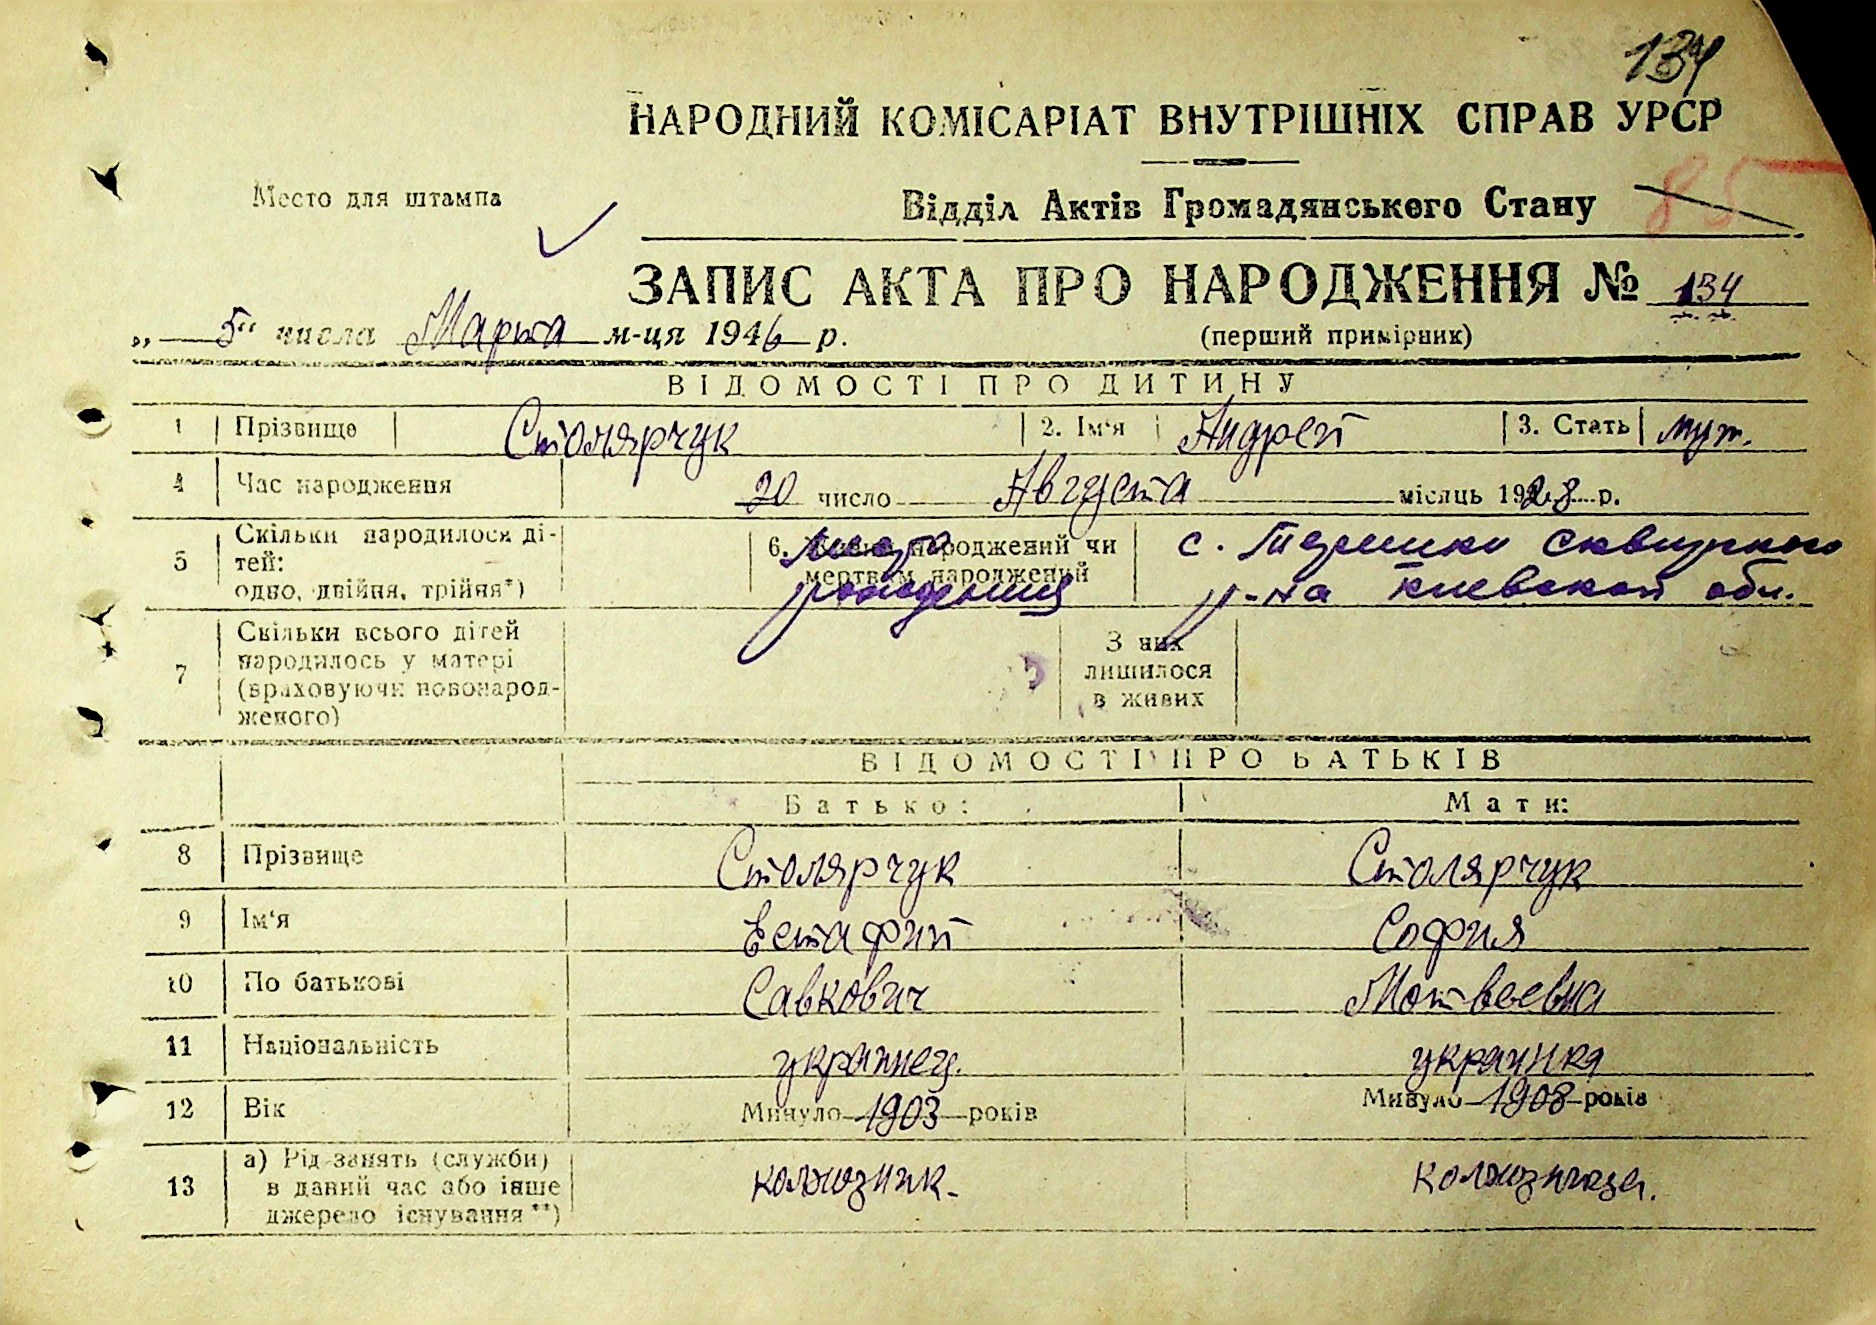 134
НАРОДНИЙ КОМІСАРІАТ ВНУТРІШНІХ СПРАВ УРСР
Место для штампа
Відділ Актів Громадянського Стану
85
ЗАПИС АКТА ПРО НАРОДЖЕННЯ № 134
„ 5 “ числа Марта м-ця 1946 р.
(перший примірник)
ВІДОМОСТІ ПРО ДИТИНУ
1 Прізвище Столярчук 2. Ім'я Андрей 3. Стать муж.
4 Час народження 20 число Августа місяць 1928 р.
5 Скільки народилося ді-
тей:
одно, двійня, трійня*)
6. народжений чи
мертвим народжений
Место
рождения
с. Терешки Сквирского
р-на Киевской обл.
7 Скільки всього дітей
народилось у матері
(враховуючи новонарод-
женого)
З них
лишилося
в живих
ВІДОМОСТІ ПРО БАТЬКІВ
Батько: Мати:
8 Прізвище Столярчук Столярчук
9 Ім'я Естафий София
10 По батькові Савкович Мотвеевна
11 Національність украинец. украинка
12 Вік Минуло 1903 років Минуло 1908 років
13 а) Рід занять (служби)
в даний час або інше
джерело існування**)
колхозник. колхозница.